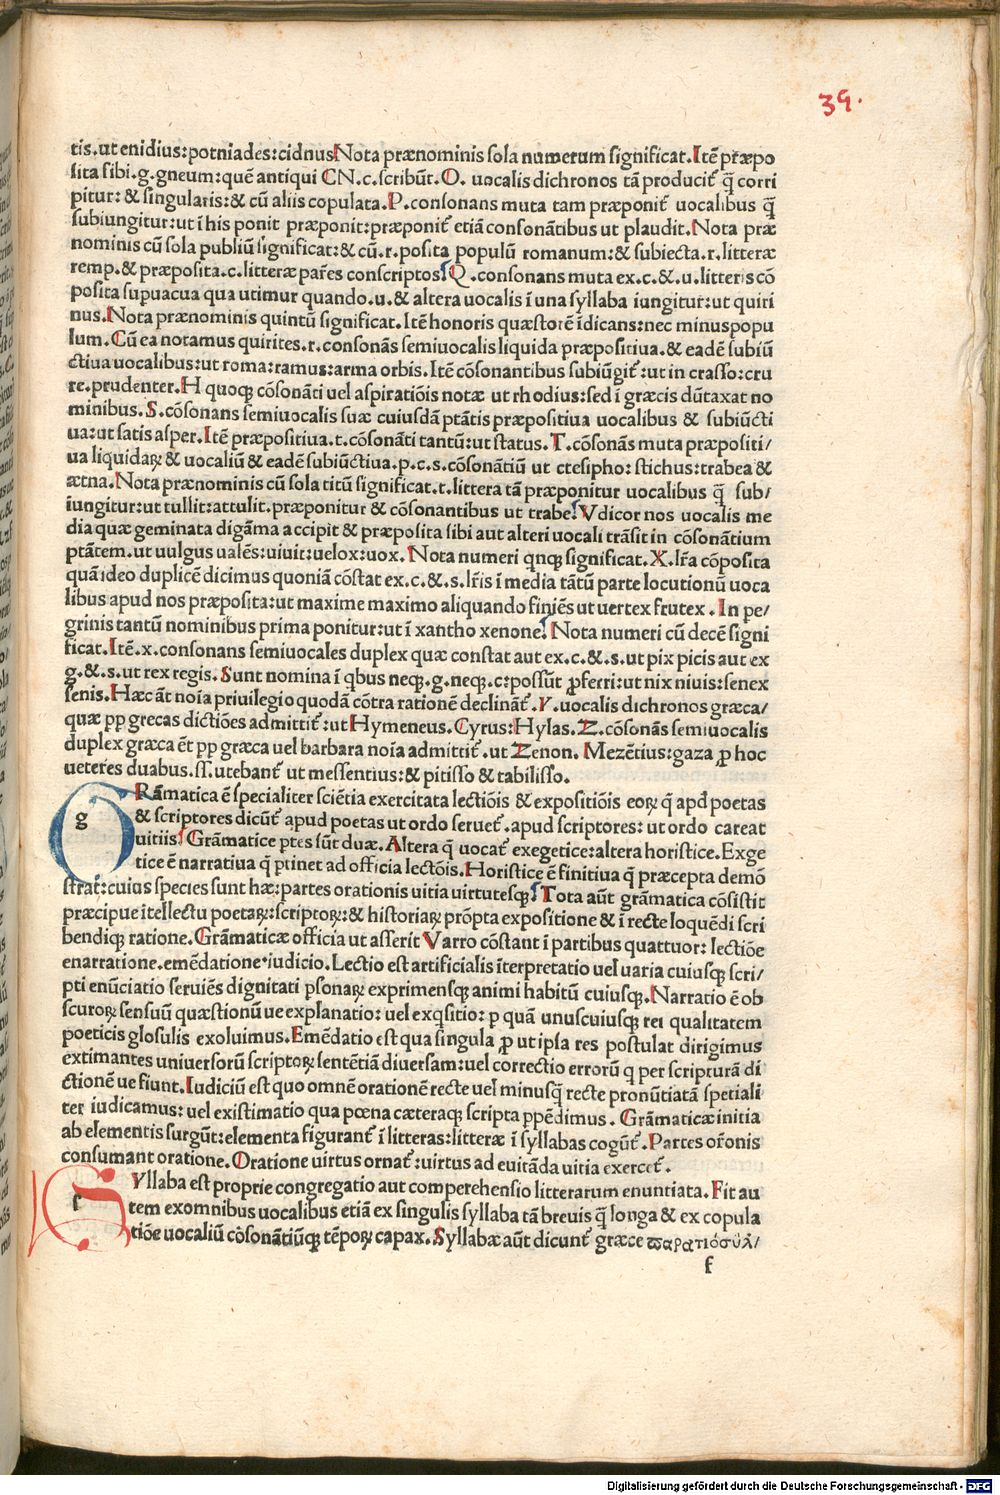 39.
tis.ut enidius:potniades:cidnus Nota prænominis sola numerum significat.Itē præpo
sita sibi.g.gneum:quē antiqui CN.c.scribūt.O. uocalis dichronos tā producit᷑ q̄ corri
pitur: & singularis:& cū aliis copulata.P.consonans muta tam præponit᷑ uocalibus q̄
subiungitur:ut ī his ponit præponit:præponit᷑ etiā consonātibus ut plaudit.Nota præ
nominis cū sola publiū significat:& cū.r.posita populū romanum:& subiecta.r.litteræ
remp.& præposita.c.litteræ pa͞res conscriptos.Q.consonans muta ex.c.&.u.litteris cō
posita supuacua qua utimur quando.u.& altera uocalis ī una syllaba iungitur:ut quiri
nus.Nota prænominis quintū significat.Itē honoris quæstorē īdicans:nec minus popu
lum.Cū ea notamus quirites.r.consonās semiuocalis liquida præpositiua.& eadē subiū
ctiua uocalibus:ut roma:ramus:arma orbis.Itē cōsonantibus subiūgit᷑:ut in crasso:cru
re.prudenter.H quoqꝫ cōsonāti uel aspiratiōis notæ ut rhodius:sed ī græcis dūtaxat no
minibus.S.cōsonans semiuocalis suæ cuiusdā ptātis præpositiua uocalibus & subiūcti
ua:ut satis asper.Itē præpositiua.t.cōsonāti tantū:ut status.T.cōsonās muta præpositi/
ua liquidaꝝ & uocaliū & eadē subiūctiua.p.c.s.cōsonātiū ut ctesipho:stichus:trabea &
ætna.Nota prænominis cū sola titū significat.t.littera tā præponitur uocalibus q̄ sub/
iungitur:ut tullit:attulit.præponitur & cōsonantibus ut trabe.Vdicor nos uocalis me
dia quæ geminata digāma accipit & præposita sibi aut alteri uocali trāsit in cōsonātium
ptātem.ut uulgus ualēs:uiuit:uelox:uox. Nota numeri qnqꝫ significat.X.lr͞a cōposita
quā ideo duplicē dicimus quoniā cōstat ex.c.&.s.lr͞is ī media tātū parte locutionū uoca
libus apud nos præposita:ut maxime maximo aliquando finiēs ut uertex frutex.In pe/
grinis tantū nominibus prima ponitur:ut ī xantho xenone. Nota numeri cū decē signi
ficat.Itē.x.consonans semiuocales duplex quæ constat aut ex.c.&.s.ut pix picis aut ex
g.&.s.ut rex regis. Sunt nomina ī qbus neqꝫ.g.neqꝫ.c:possūt ꝓferri:ut nix niuis:senex
senis.Hæc āt noīa priuilegio quodā cōtra rationē declināt᷑.Y.uocalis dichronos græca/
quæ pp grecas dictiōes admittit᷑:ut Hymeneus.Cyrus:Hylas.Z.cōsonās semiuocalis
duplex græca ēt pp græca uel barbara noīa admittit᷑.ut Zenon. Mezētius:gaza ꝓ hoc
ueteres duabus.ss.utebant᷑ ut messentius:& pitisso & tabilisso.
g
GRāmatica ē specialiter sciētia exercitata lectiōis & expositiōis eoꝝ q̄ apd poetas
& scriptores dicūt᷑ apud poetas ut ordo seruet᷑.apud scriptores: ut ordo careat
uitiis. Grāmatice ptes sūt duæ.Altera q̄ uocat᷑ exegetice:altera horistice.Exge
tice ē narratiua q̄ ptinet ad officia lectōis.Horistice ē finitiua q̄ præcepta demō
strat:cuius species sunt hæ:partes orationis uitia uirtutesqꝫ.Tota aūt grāmatica cōsistit
præcipue ītellectu poetaꝝ:scriptoꝝ:& historiaꝝ prōpta expositione & ī recte loquēdi scri
bendiqꝫ ratione.Grāmaticæ officia ut asserit Varro cōstant ī partibus quattuor: lectiōe
enarratione.emēdatione.iudicio.Lectio est artificialis īterpretatio uel uaria cuiusqꝫ scri/
pti enūciatio seruiēs dignitati psonaꝝ exprimensqꝫ animi habitū cuiusqꝫ.Narratio ē ob
scuroꝝ sensuū quæstionū ue explanatio: uel exqsitio: p quā unuscuiusqꝫ rei qualitatem
poeticis glosulis exoluimus.Emēdatio est qua singula ꝓ ut ipsa res postulat dirigimus
extimantes uniuersorū scriptoꝝ sentētiā diuersam:uel correctio errorū q per scripturā di
ctionē ue fiunt.Iudiciū est quo omnē orationē recte uel minusq̄ recte pronūtiatā spetiali
ter iudicamus: uel existimatio qua pœna cæteraqꝫ scripta ppēdimus. Grāmaticæ initia
ab elementis surgūt:elementa figurant᷑ ī litteras:litteræ ī syllabas cogūt᷑.Partes or͞onis
consumant oratione.Oratione uirtus ornat᷑:uirtus ad euitāda uitia exercet᷑.
s
SYllaba est proprie congregatio aut comperehensio litterarum enuntiata.Fit au
tem exomnibus uocalibus etiā ex singulis syllaba tā breuis q̄ longa & ex copula
tiōe uocaliū cōsonātiūqꝫ tēpoꝝ capax.Syllabæ aūt dicunt᷑ græce ϖαρατιόσύλ/
f
Digitalisierung gefördert durch die Deutsche Forschungsgemeinschaft - DFG